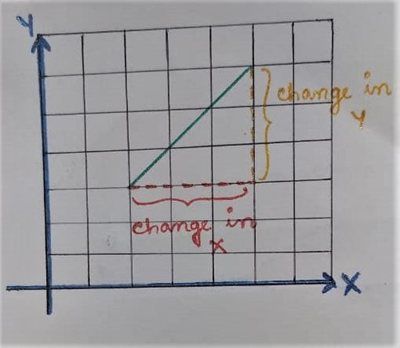 Y
change in
Y
change in
X
X